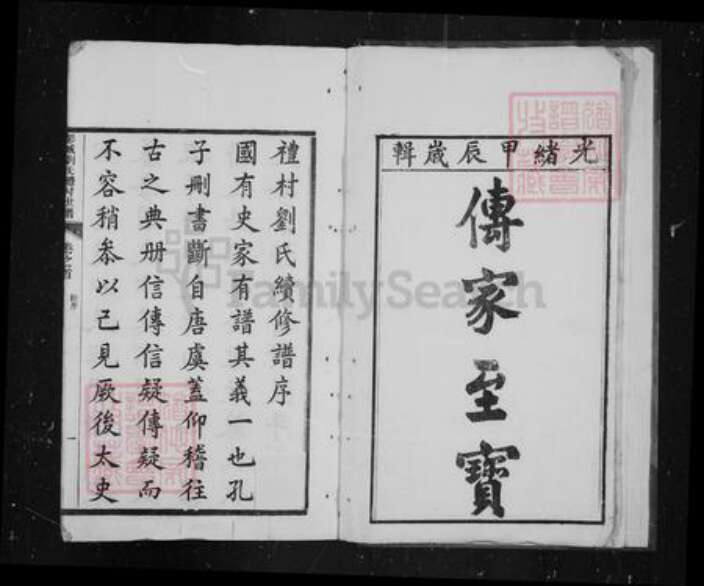 光緒甲辰歲輯
傳家至寶
禮村劉氏續修譜序
國有史家有譜其義一也孔
子刪書斷自唐虞蓋仰稽往
古之典册信傳信疑傳疑而
不容稍叅以己見厥後太史
卷之首
一
FamilySearch